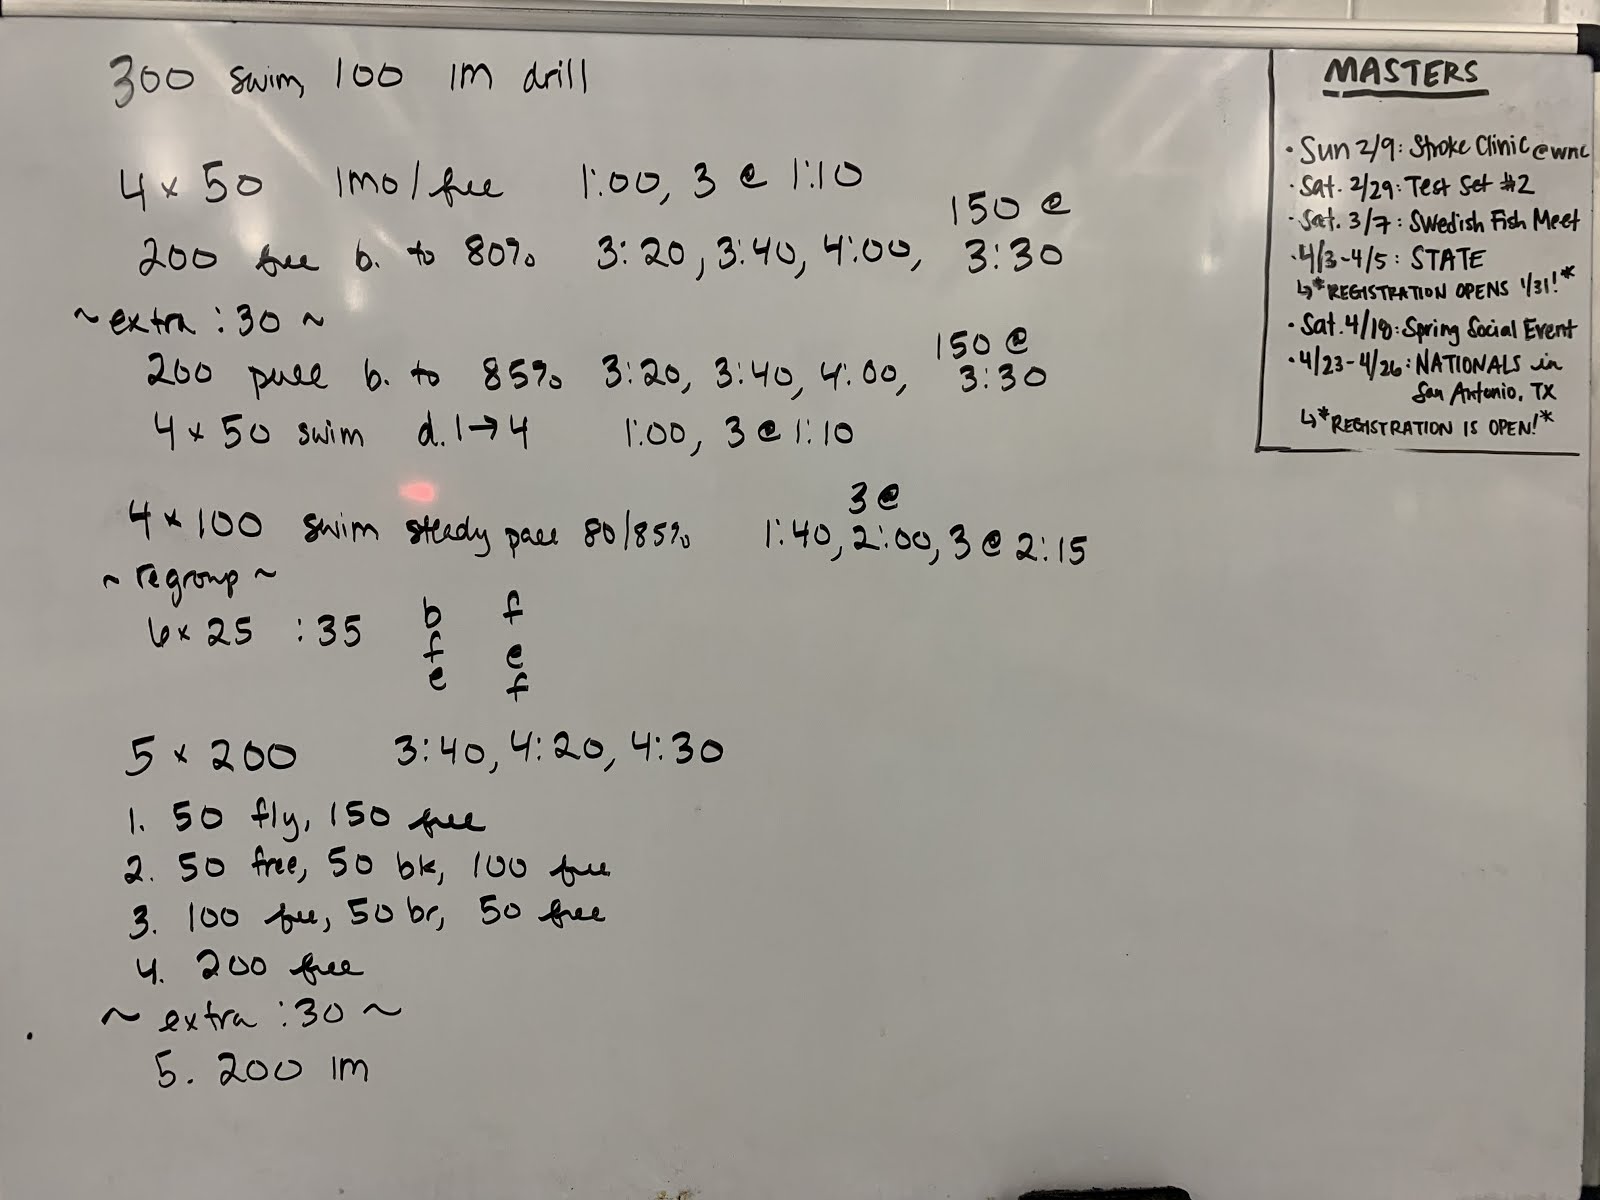 300 swim, 100 IM drill
4 x 50 IMO/free 1:00, 3 @ 1:10
150 @
200 free b. to 80% 3:20, 3:40, 4:00, 3:30
~ extra :30 ~
150 @
200 pull b. to 85% 3:20, 3:40, 4:00, 3:30
4 x 50 swim d. 1→4 1:00, 3 @ 1:10
3 @
4 x 100 swim steady pace 80/85% 1:40, 2:00, 3 @ 2:15
~ regroup ~
6 x 25 :35 b f
f e
e f
5 x 200 3:40, 4:20, 4:30
1. 50 fly, 150 free
2. 50 free, 50 bk, 100 free
3. 100 free, 50 br, 50 free
4. 200 free
~ extra :30 ~
5. 200 IM
MASTERS
• Sun 2/9: Stroke Clinic @ WNC
• Sat. 2/29: Test Set #2
• Sat. 3/7: Swedish Fish Meet
• 4/3-4/5: STATE
↳ *REGISTRATION OPENS 1/31!*
• Sat. 4/18: Spring Social Event
• 4/23-4/26: NATIONALS in
San Antonio, TX
↳ *REGISTRATION IS OPEN!*